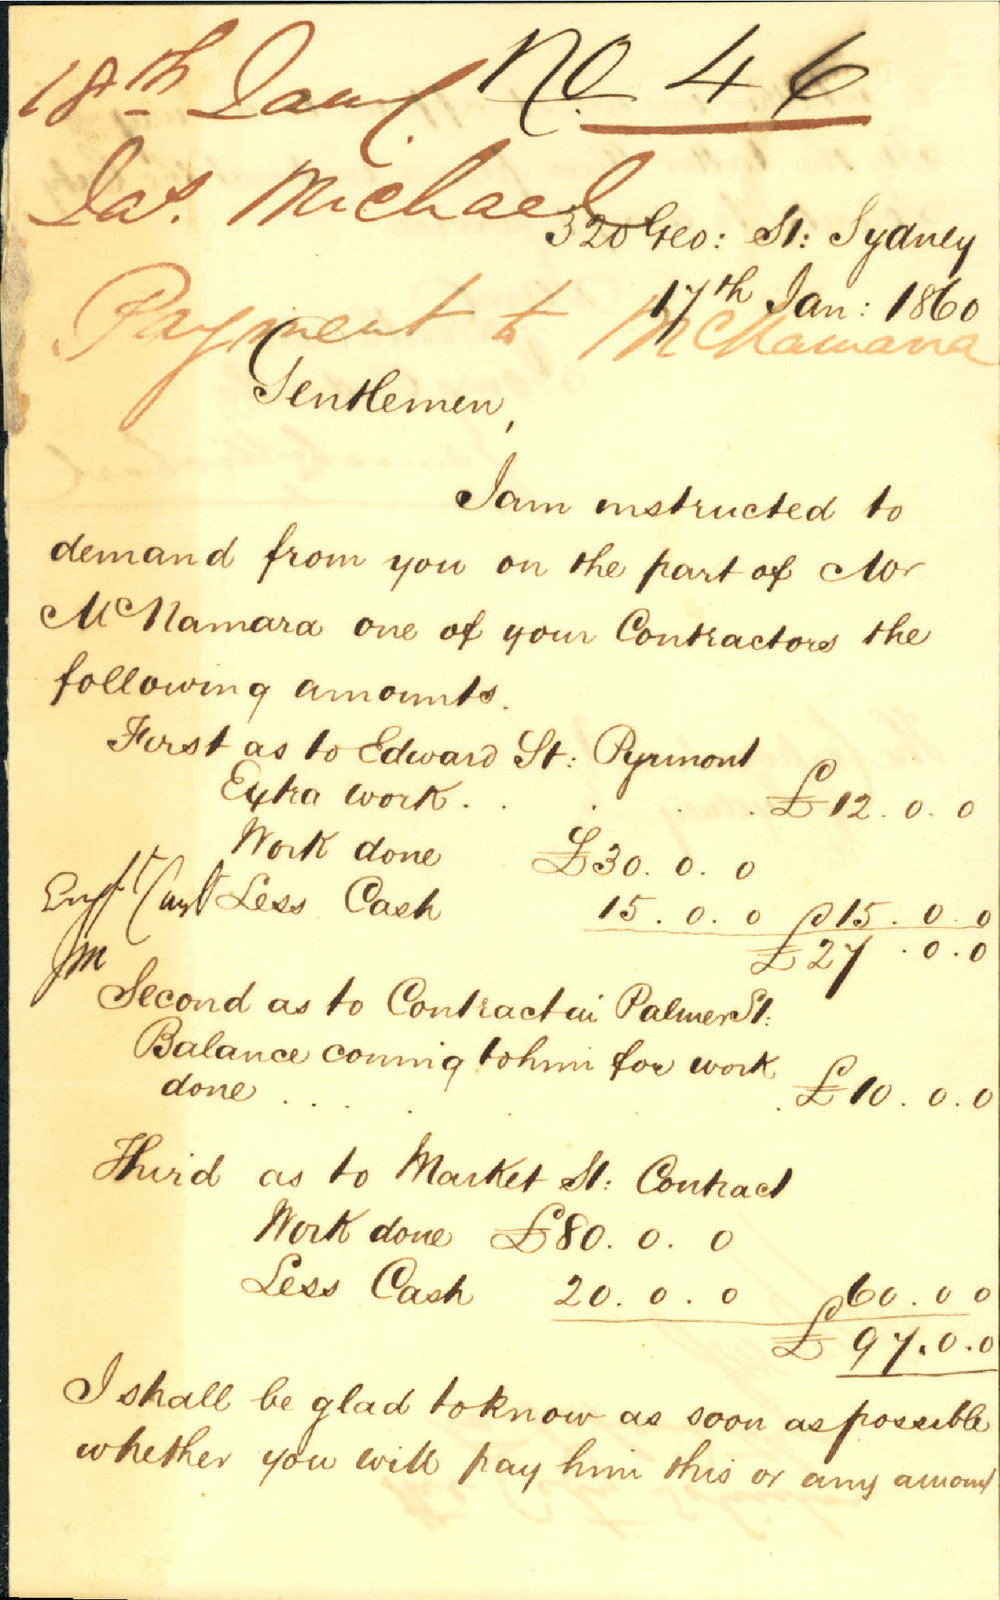 18th Jany No. 46
Jas. Michael
320 Geo: St: Sydney
17th Jan: 1860
Payment to McNamara
Gentlemen,
I am instructed to
demand from you on the part of Mr
McNamara one of your Contractors the
following amounts.
First as to Edward St: Pyrmont
Extra work . . . . . £12. 0. 0
Work done £30. 0. 0
Less Cash 15. 0. 0 £15. 0. 0
£27. 0. 0
JM
Second as to Contract in Palmer St:
Balance coming to him for work
done . . . . . £10. 0. 0
Third as to Market St: Contract
Work done £80. 0. 0
Less Cash 20. 0. 0 60. 0 0
£97. 0. 0
I shall be glad to know as soon as possible
whether you will pay him this or any amount